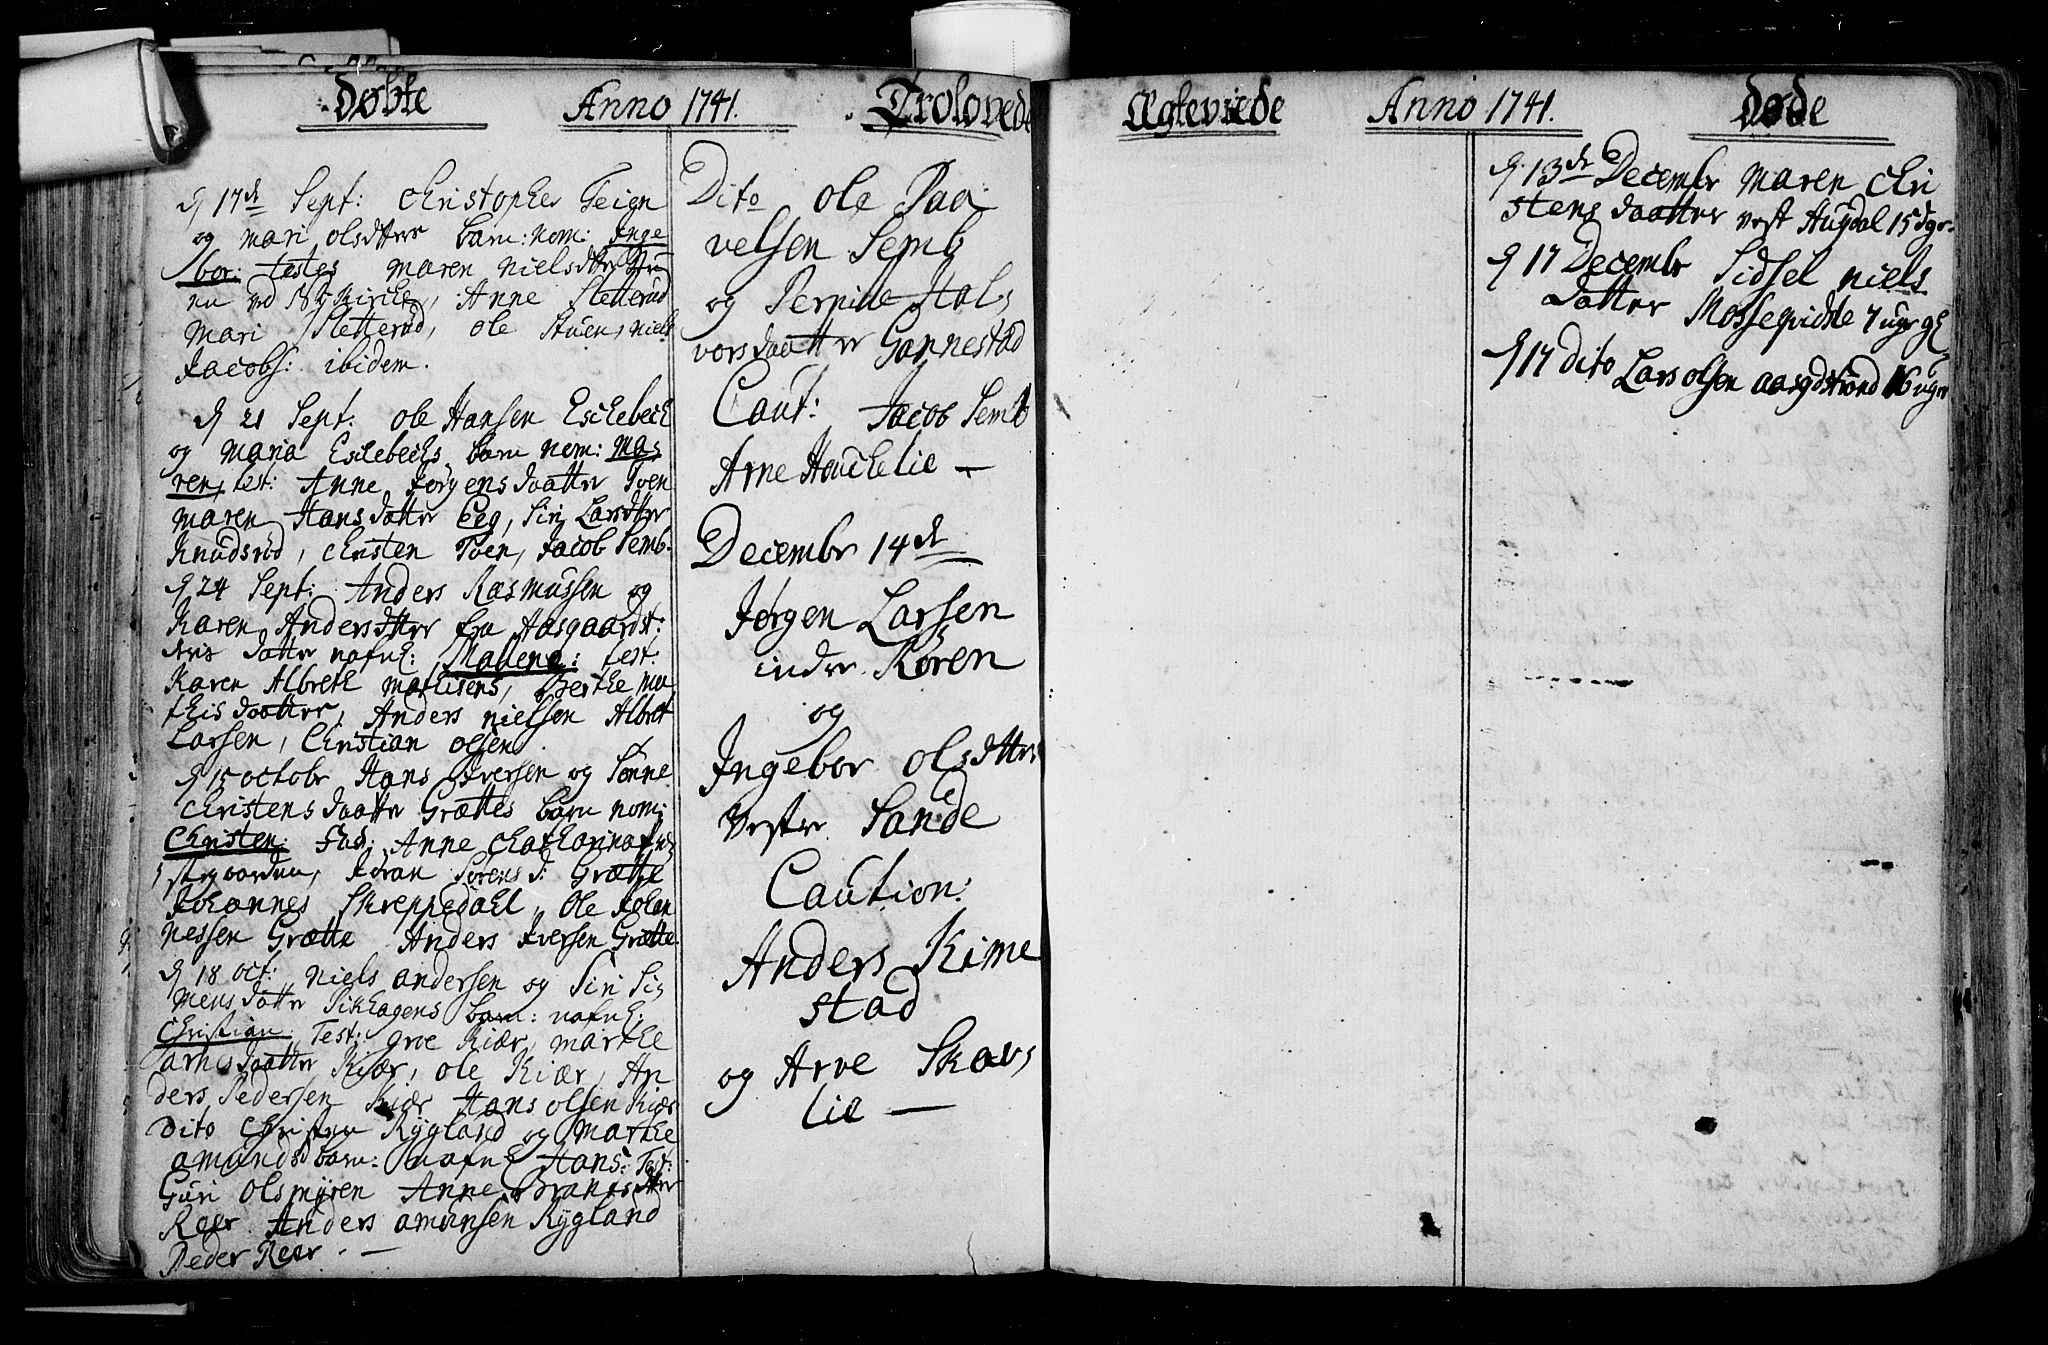 Døbte
Anno 1741.
d 17de Sept: Christopher Teien
og Mari olsdtters barn: nom: Inge
bor: testes Maren Nielsdtter
ved Kirche, Anne Sletterød
Mari Sletterød, ole Niels
Jacobs: ibidem.
d 21 Sept: ole Hansen Eschebech
og Maria Eschebechs barn nom: Ma
ren, test: Anne Jørgensdaatter Toen
Maren Hansdatter Eeg, Siri Larsdtter
Knudsrød, Christen Toen, Jacob Semb.
d 24 Sept: Anders Rasmussen og
Karen Andersdtter fra Aasgaardst:
ders datter nafnl: Mallene: test:
Karen Albreth Mathisens, Berthe Ma
thisdaatter, Anders Nielsen Albret
Larsen, Christian olsen
d 15 octobr Hans Iversen og Sønne
Christensdaatter Grættes barn nom:
Christen: Fad: Anne Chatharina
Jøran Sørens d: Grætte
Johannes Skreppedahl, Ole Johan
nessen Grætte Anders Iversen Grætte.
d 18 oct: Niels andersen og Siri Si
mensdatter Sikhagens barn: nafnl:
Christian: Test: groe Kiær, marthe
arnesdaatter Kiær, ole Kiær, An
ders Pedersen Kiær Hans olsen Kiær
Dito Christen Rygland og Marthe
amunds barn: nafnl Hans: Test:
Guri Olsmyren Anne Brandsdtter
Reer Anders amunsen Rygland
Peder Reer. —
Trolovede
Dito Ole Paa
velsen Semb
og Pernille Hal
vorsdaatter Gannestad
Caut: Jacob Semb
Arne Houchelie —
Decembr 14de
Jørgen Larsen
indre Røren
og
Ingebor olsdtter
vester Sande
Caution:
Anders Kime
stad
og Arve Skavs
lie —
Ægteviede
Anno 1741.
døde
d. 13de Decembr Maren Chri
stensdaatter vest Hugdal 15 dgr.
d 17 Decembr Sidsel Niels
datter Mossequidste 7 ugr gl
d 17 Dito Lars olsen aasgdstrand 16 ugr